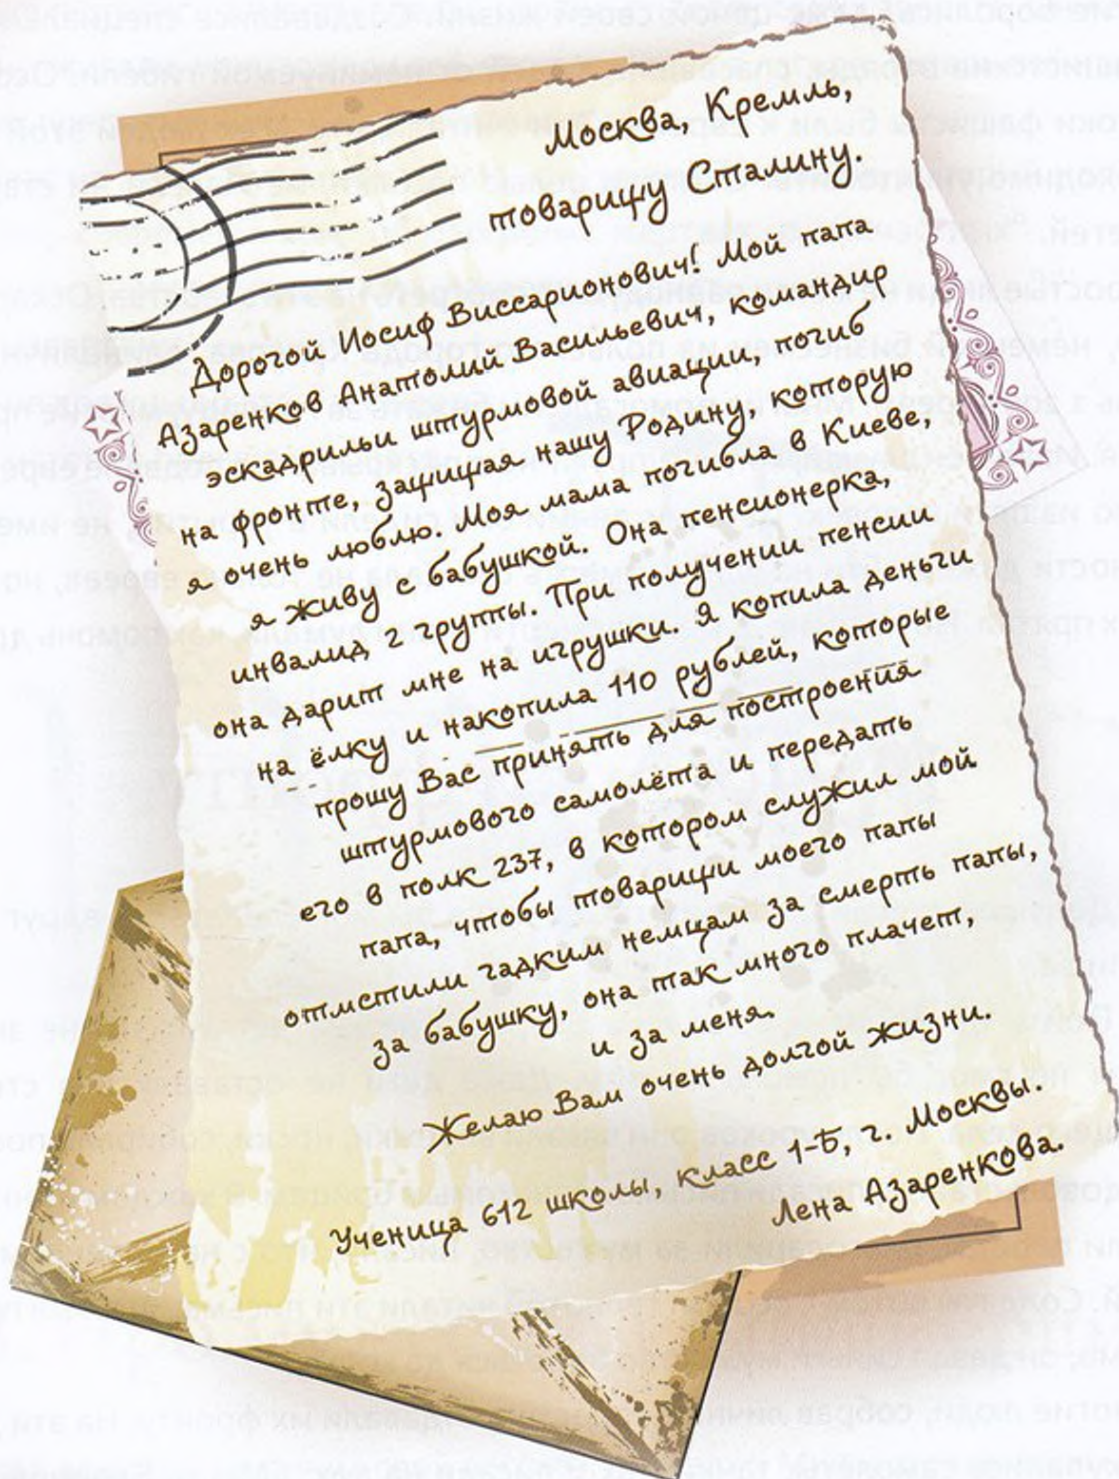 Москва, Кремль,
товарищу Сталину.
Дорогой Иосиф Виссарионович! Мой папа
Азаренков Анатолий Васильевич, командир
эскадрильи штурмовой авиации, погиб
на фронте, защищая нашу Родину, которую
я очень люблю. Моя мама погибла в Киеве,
я живу с бабушкой. Она пенсионерка,
инвалид 2 группы. При получении пенсии
она дарит мне на игрушки. Я копила деньги
на ёлку и накопила 110 рублей, которые
прошу Вас принять для построения
штурмового самолёта и передать
его в полк 237, в котором служил мой
папа, чтобы товарищи моего папы
отмстили гадким немцам за смерть папы,
за бабушку, она так много плачет,
и за меня.
Желаю Вам очень долгой жизни.
Ученица 612 школы, класс 1-Б, г. Москвы.
Лена Азаренкова.